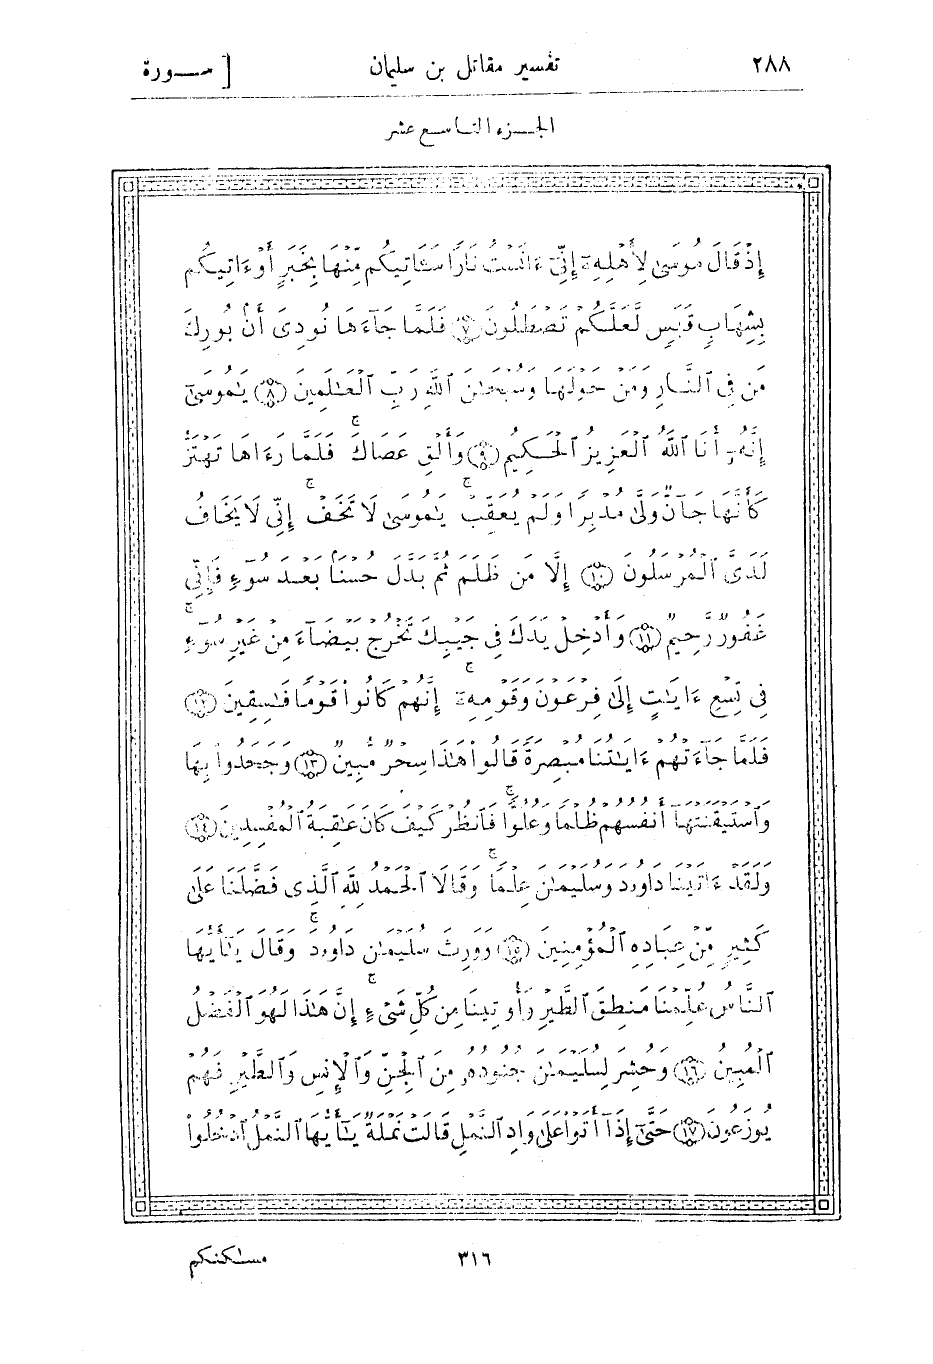 ٢٨٨ تفسير مقاتل بن سليمان [ سـورة
الجـزء التاسع عشر
إِذْ قَالَ مُوسَىٰ لِأَهْلِهِۦٓ إِنِّىٓ ءَانَسْتُ نَارًا سَـَٔاتِيكُم مِّنْهَا بِخَبَرٍ أَوْ ءَاتِيكُم
بِشِهَابٍ قَبَسٍ لَّعَلَّكُمْ تَصْطَلُونَ ﴿٧﴾ فَلَمَّا جَآءَهَا نُودِىَ أَنۢ بُورِكَ
مَن فِى ٱلنَّارِ وَمَنْ حَوْلَهَا وَسُبْحَٰنَ ٱللَّهِ رَبِّ ٱلْعَٰلَمِينَ ﴿٨﴾ يَٰمُوسَىٰٓ
إِنَّهُۥٓ أَنَا ٱللَّهُ ٱلْعَزِيزُ ٱلْحَكِيمُ ﴿٩﴾ وَأَلْقِ عَصَاكَ ۚ فَلَمَّا رَءَاهَا تَهْتَزُّ
كَأَنَّهَا جَآنٌّ وَلَّىٰ مُدْبِرًا وَلَمْ يُعَقِّبْ ۚ يَٰمُوسَىٰ لَا تَخَفْ ۚ إِنِّى لَا يَخَافُ
لَدَىَّ ٱلْمُرْسَلُونَ ﴿١٠﴾ إِلَّا مَن ظَلَمَ ثُمَّ بَدَّلَ حُسْنًۢا بَعْدَ سُوٓءٍ فَإِنِّى
غَفُورٌ رَّحِيمٌ ﴿١١﴾ وَأَدْخِلْ يَدَكَ فِى جَيْبِكَ تَخْرُجْ بَيْضَآءَ مِنْ غَيْرِ سُوٓءٍ ۚ
فِى تِسْعِ ءَايَٰتٍ إِلَىٰ فِرْعَوْنَ وَقَوْمِهِۦٓ ۚ إِنَّهُمْ كَانُوا۟ قَوْمًا فَٰسِقِينَ ﴿١٢﴾
فَلَمَّا جَآءَتْهُمْ ءَايَٰتُنَا مُبْصِرَةً قَالُوا۟ هَٰذَا سِحْرٌ مُّبِينٌ ﴿١٣﴾ وَجَحَدُوا۟ بِهَا
وَٱسْتَيْقَنَتْهَآ أَنفُسُهُمْ ظُلْمًا وَعُلُوًّا ۚ فَٱنظُرْ كَيْفَ كَانَ عَٰقِبَةُ ٱلْمُفْسِدِينَ ﴿١٤﴾
وَلَقَدْ ءَاتَيْنَا دَاوُۥدَ وَسُلَيْمَٰنَ عِلْمًا ۚ وَقَالَا ٱلْحَمْدُ لِلَّهِ ٱلَّذِى فَضَّلَنَا عَلَىٰ
كَثِيرٍ مِّنْ عِبَادِهِ ٱلْمُؤْمِنِينَ ﴿١٥﴾ وَوَرِثَ سُلَيْمَٰنُ دَاوُۥدَ ۚ وَقَالَ يَٰٓأَيُّهَا
ٱلنَّاسُ عُلِّمْنَا مَنطِقَ ٱلطَّيْرِ وَأُوتِينَا مِن كُلِّ شَىْءٍ ۚ إِنَّ هَٰذَا لَهُوَ ٱلْفَضْلُ
ٱلْمُبِينُ ﴿١٦﴾ وَحُشِرَ لِسُلَيْمَٰنَ جُنُودُهُۥ مِنَ ٱلْجِنِّ وَٱلْإِنسِ وَٱلطَّيْرِ فَهُمْ
يُوزَعُونَ ﴿١٧﴾ حَتَّىٰٓ إِذَآ أَتَوْا۟ عَلَىٰ وَادِ ٱلنَّمْلِ قَالَتْ نَمْلَةٌ يَٰٓأَيُّهَا ٱلنَّمْلُ ٱدْخُلُوا۟
٣١٦ مسٰكنكم